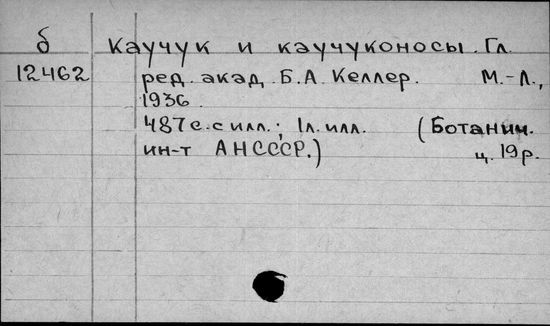 б Каучук и каучуконосы. Гл.
12462 ред. акад. Б.А. Келлер. М.-Л.,
1936.
487 с. с илл.; 1 л. илл. (Ботанич.
ин-т АНСССР.) ц. 19 р.